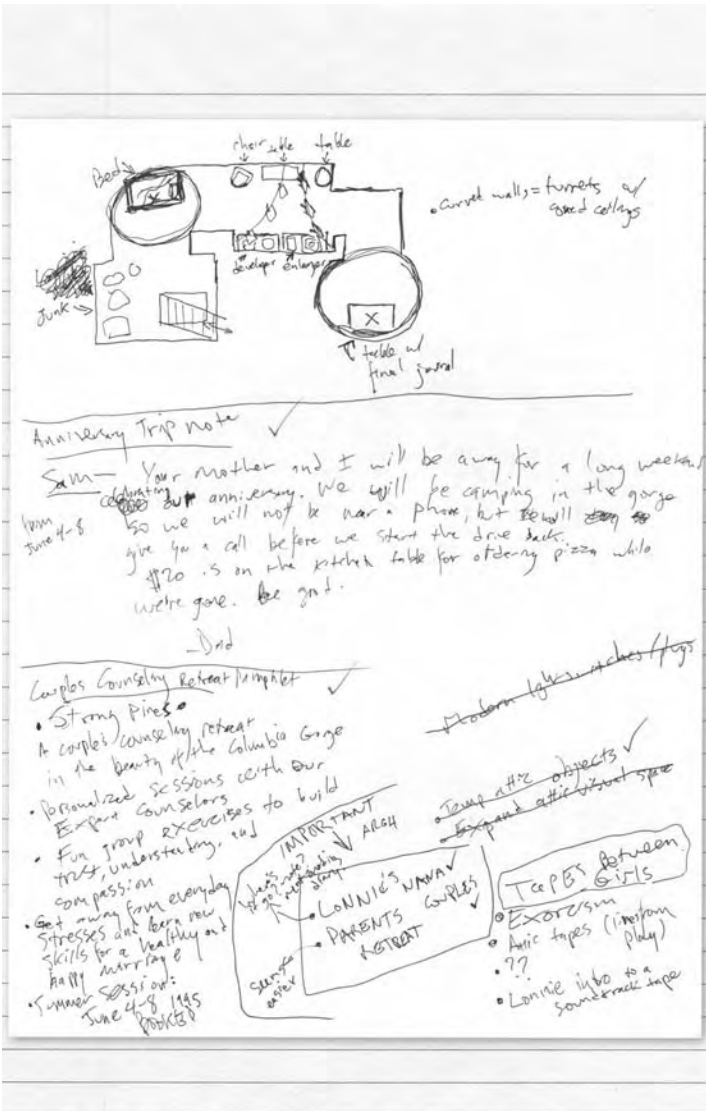 chair table table
Bed
• curved walls = turrets w/
coved ceilings
developer enlarger
Junk
X
X
table w/
final journal
Anniversary Trip note ✓
Sam— Your mother and I will be away for a long weekend
celebrating our anniversary. We will be camping in the gorge
from
June 4-8
so we will not be near a phone, but will
give you a call before we start the drive back.
$20 is on the kitchen table for ordering pizza while
we're gone. Be good.
—Dad
Couples Counseling Retreat Pamphlet ✓
• Strong Pines •
A couples counseling retreat
in the beauty of the Columbia Gorge
• personalized sessions with our
Expert counselors
• Fun group exercises to build
trust, understanding, and
compassion
• Get away from everyday
stresses and learn new
skills for a healthy and
happy marriage
• Summer Session:
June 4-8 1995
BOOKED
Modern light switches/plugs
• Temp attic objects ✓
• Expand attic visual space
IMPORTANT
ARGH
where's
to go? note?
diary
• LONNIE'S NANA ✓
• PARENTS COUPLES
RETREAT ✓
seems
easier
TAPES Between
Girls
• Exorcism
• Attic tapes
play)
• ??
• Lonnie intro to a
soundtrack tape